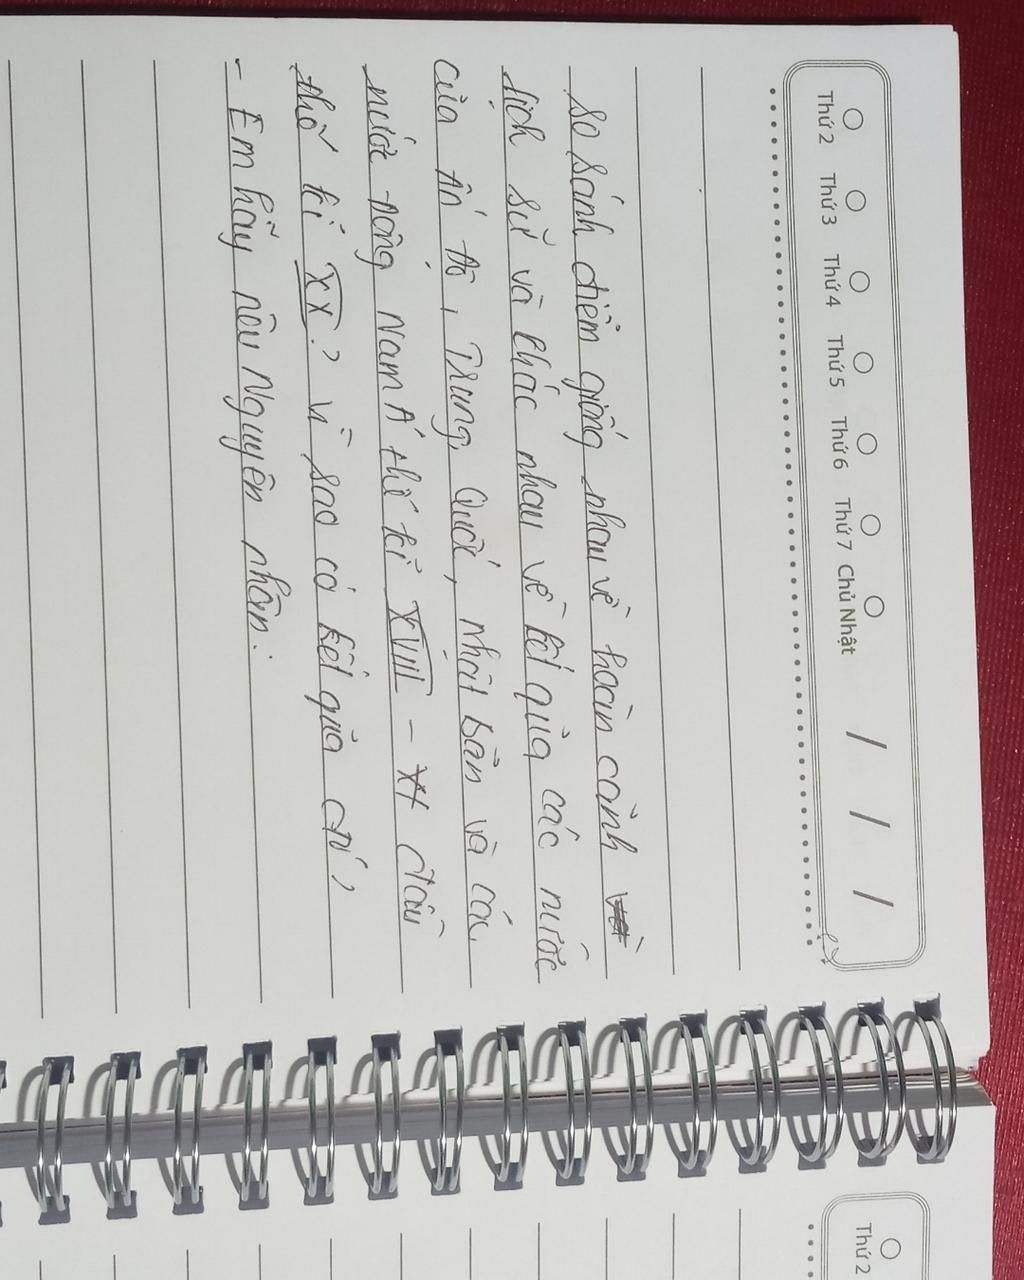 Thứ 2 Thứ 3 Thứ 4 Thứ 5 Thứ 6 Thứ 7 Chủ Nhật / / /
So sánh điểm giống nhau về hoàn cảnh
lịch sử và khác nhau về kết quả các nước
của Ấn Độ, Trung Quốc, Nhật Bản và các
nước Đông Nam Á thế kỉ XVIII - đầu
thế kỉ XX? Vì sao có kết quả đó?
- Em hãy nêu Nguyên nhân:
Thứ 2